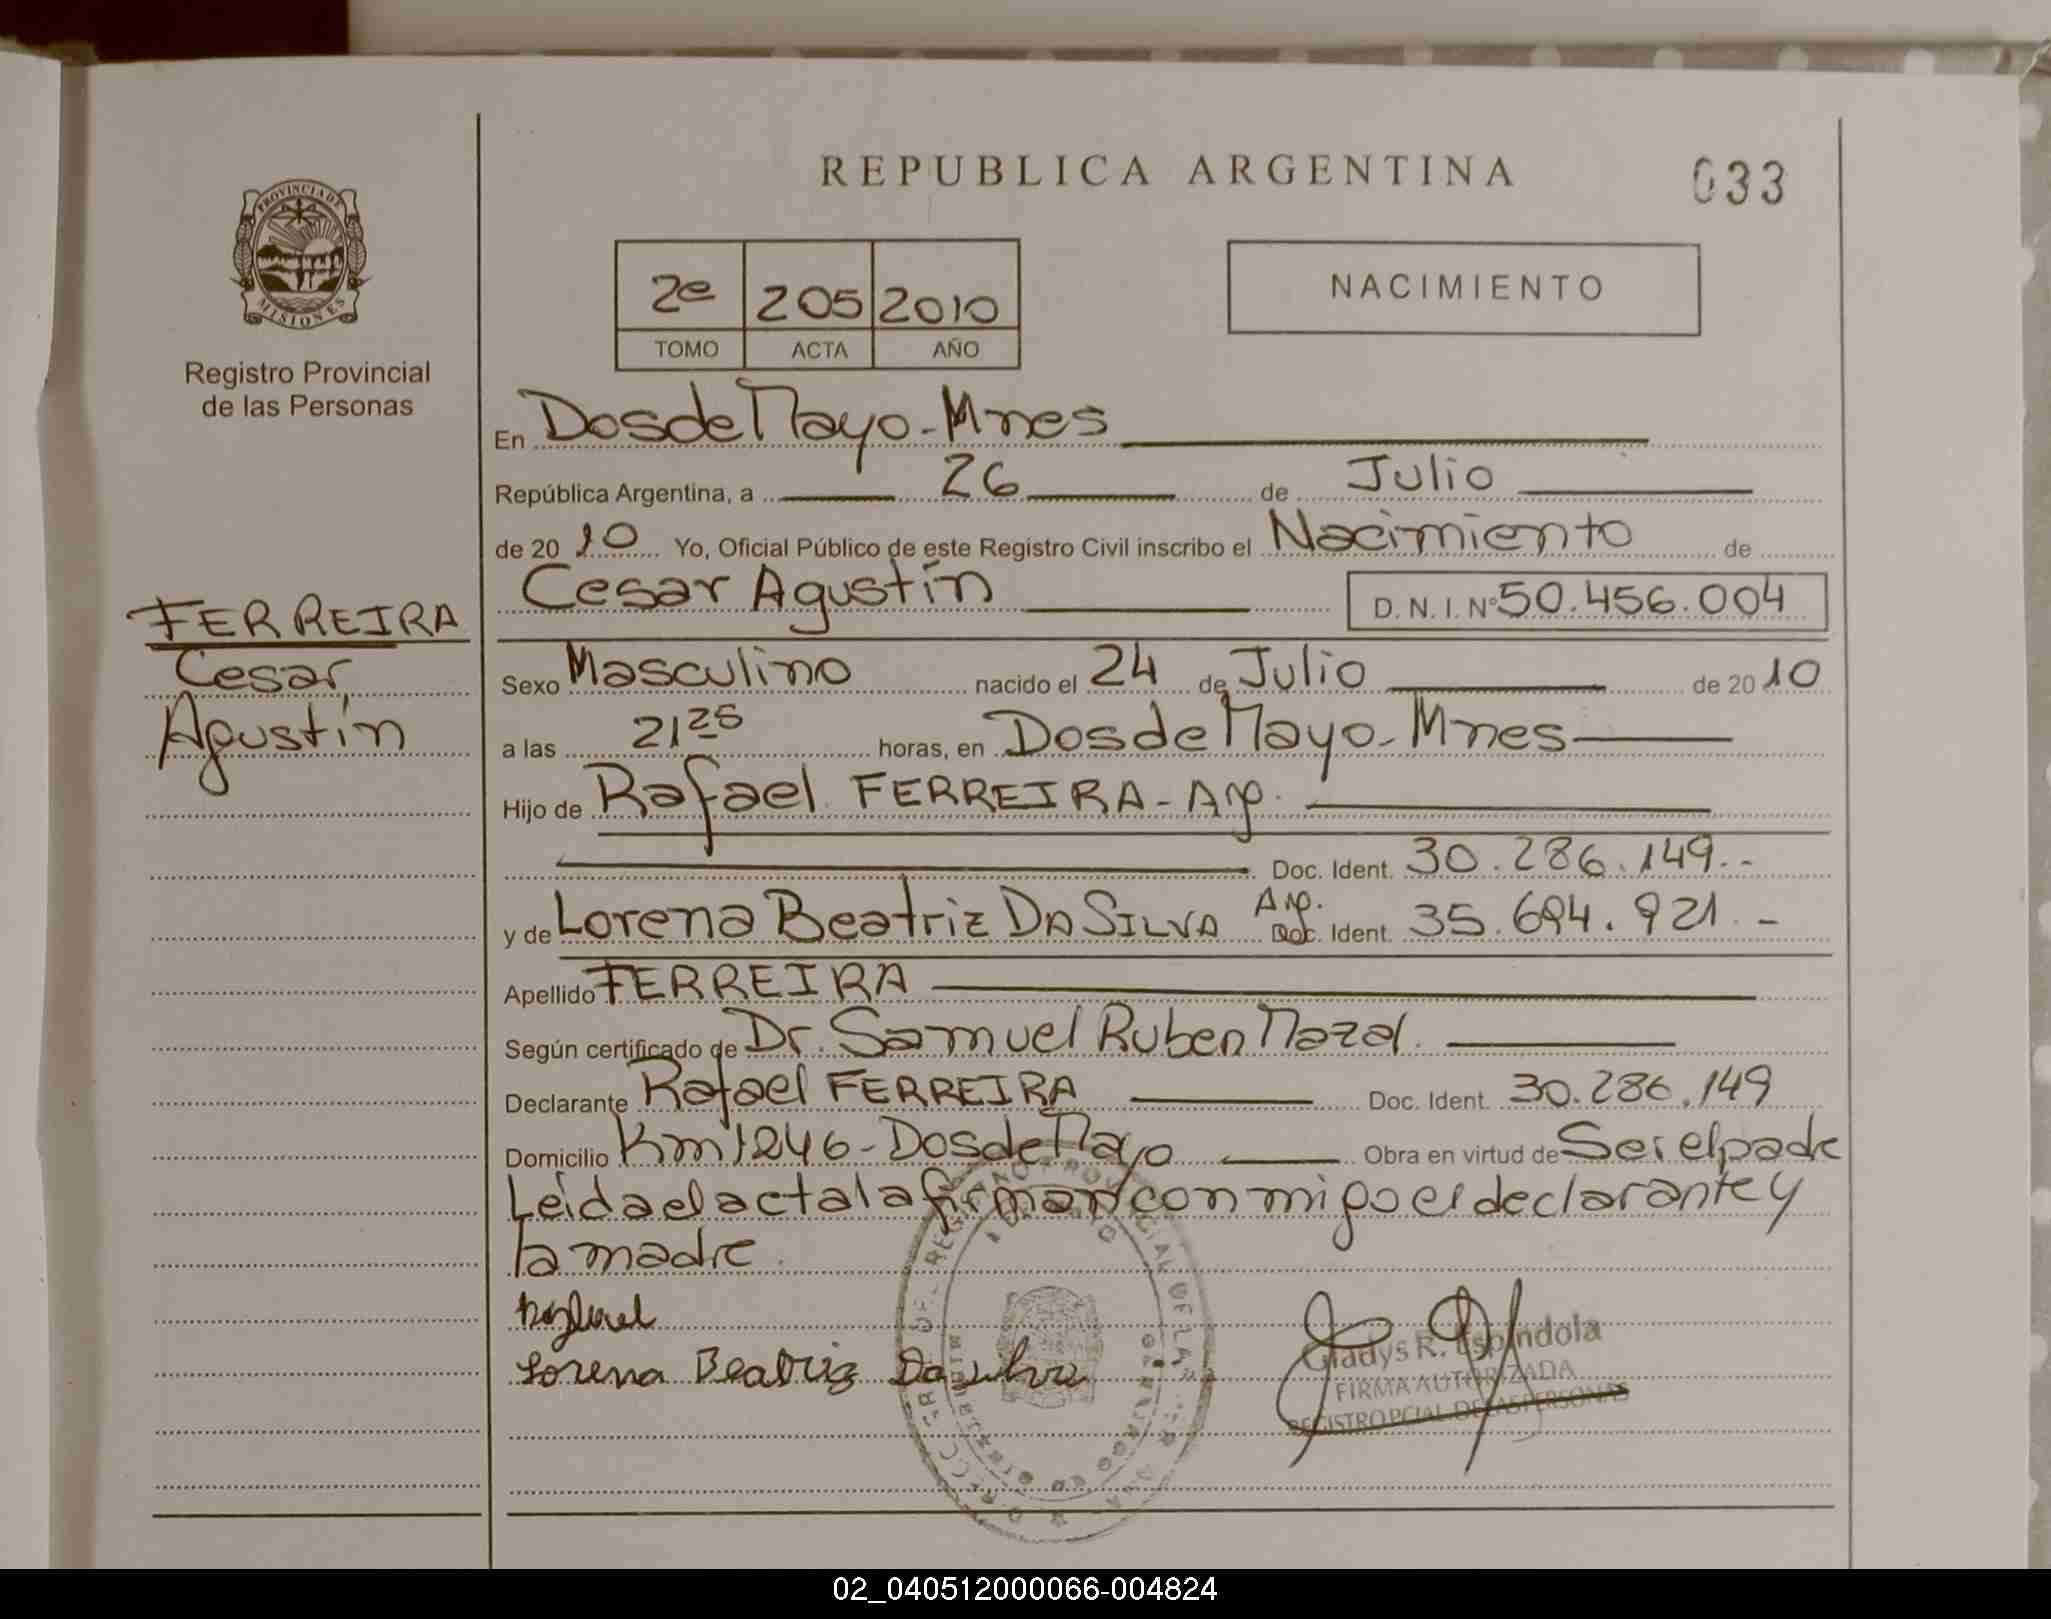 REPUBLICA ARGENTINA
033
PROVINCIA DE
MISIONES
Registro Provincial
de las Personas
2e 205 2010
TOMO ACTA AÑO
NACIMIENTO
En Dos de Mayo - Mnes
República Argentina, a 26 de Julio
de 2010 Yo, Oficial Público de este Registro Civil inscribo el Nacimiento de
Cesar Agustín D.N.I. Nº 50.456.004
FERREIRA
Cesar
Agustín
Sexo Masculino nacido el 24 de Julio de 2010
a las 21 25 horas, en Dos de Mayo - Mnes
Hijo de Rafael FERREIRA - Arg.
Doc. Ident. 30.286.149.-
y de Lorena Beatriz DA SILVA Arg. Doc. Ident. 35.694.921.-
Apellido FERREIRA
Según certificado de Dr. Samuel Ruben Mazal.
Declarante Rafael FERREIRA Doc. Ident. 30.286.149
Domicilio Km 1246 - Dos de Mayo Obra en virtud de Ser el padre
Leída el acta la firman conmigo el declarante y
la madre.
Lorena Beatriz Da silva
Gladys R. Espindola
FIRMA AUTORIZADA
REGISTRO PCIAL. DE LAS PERSONAS
02_040512000066-004824